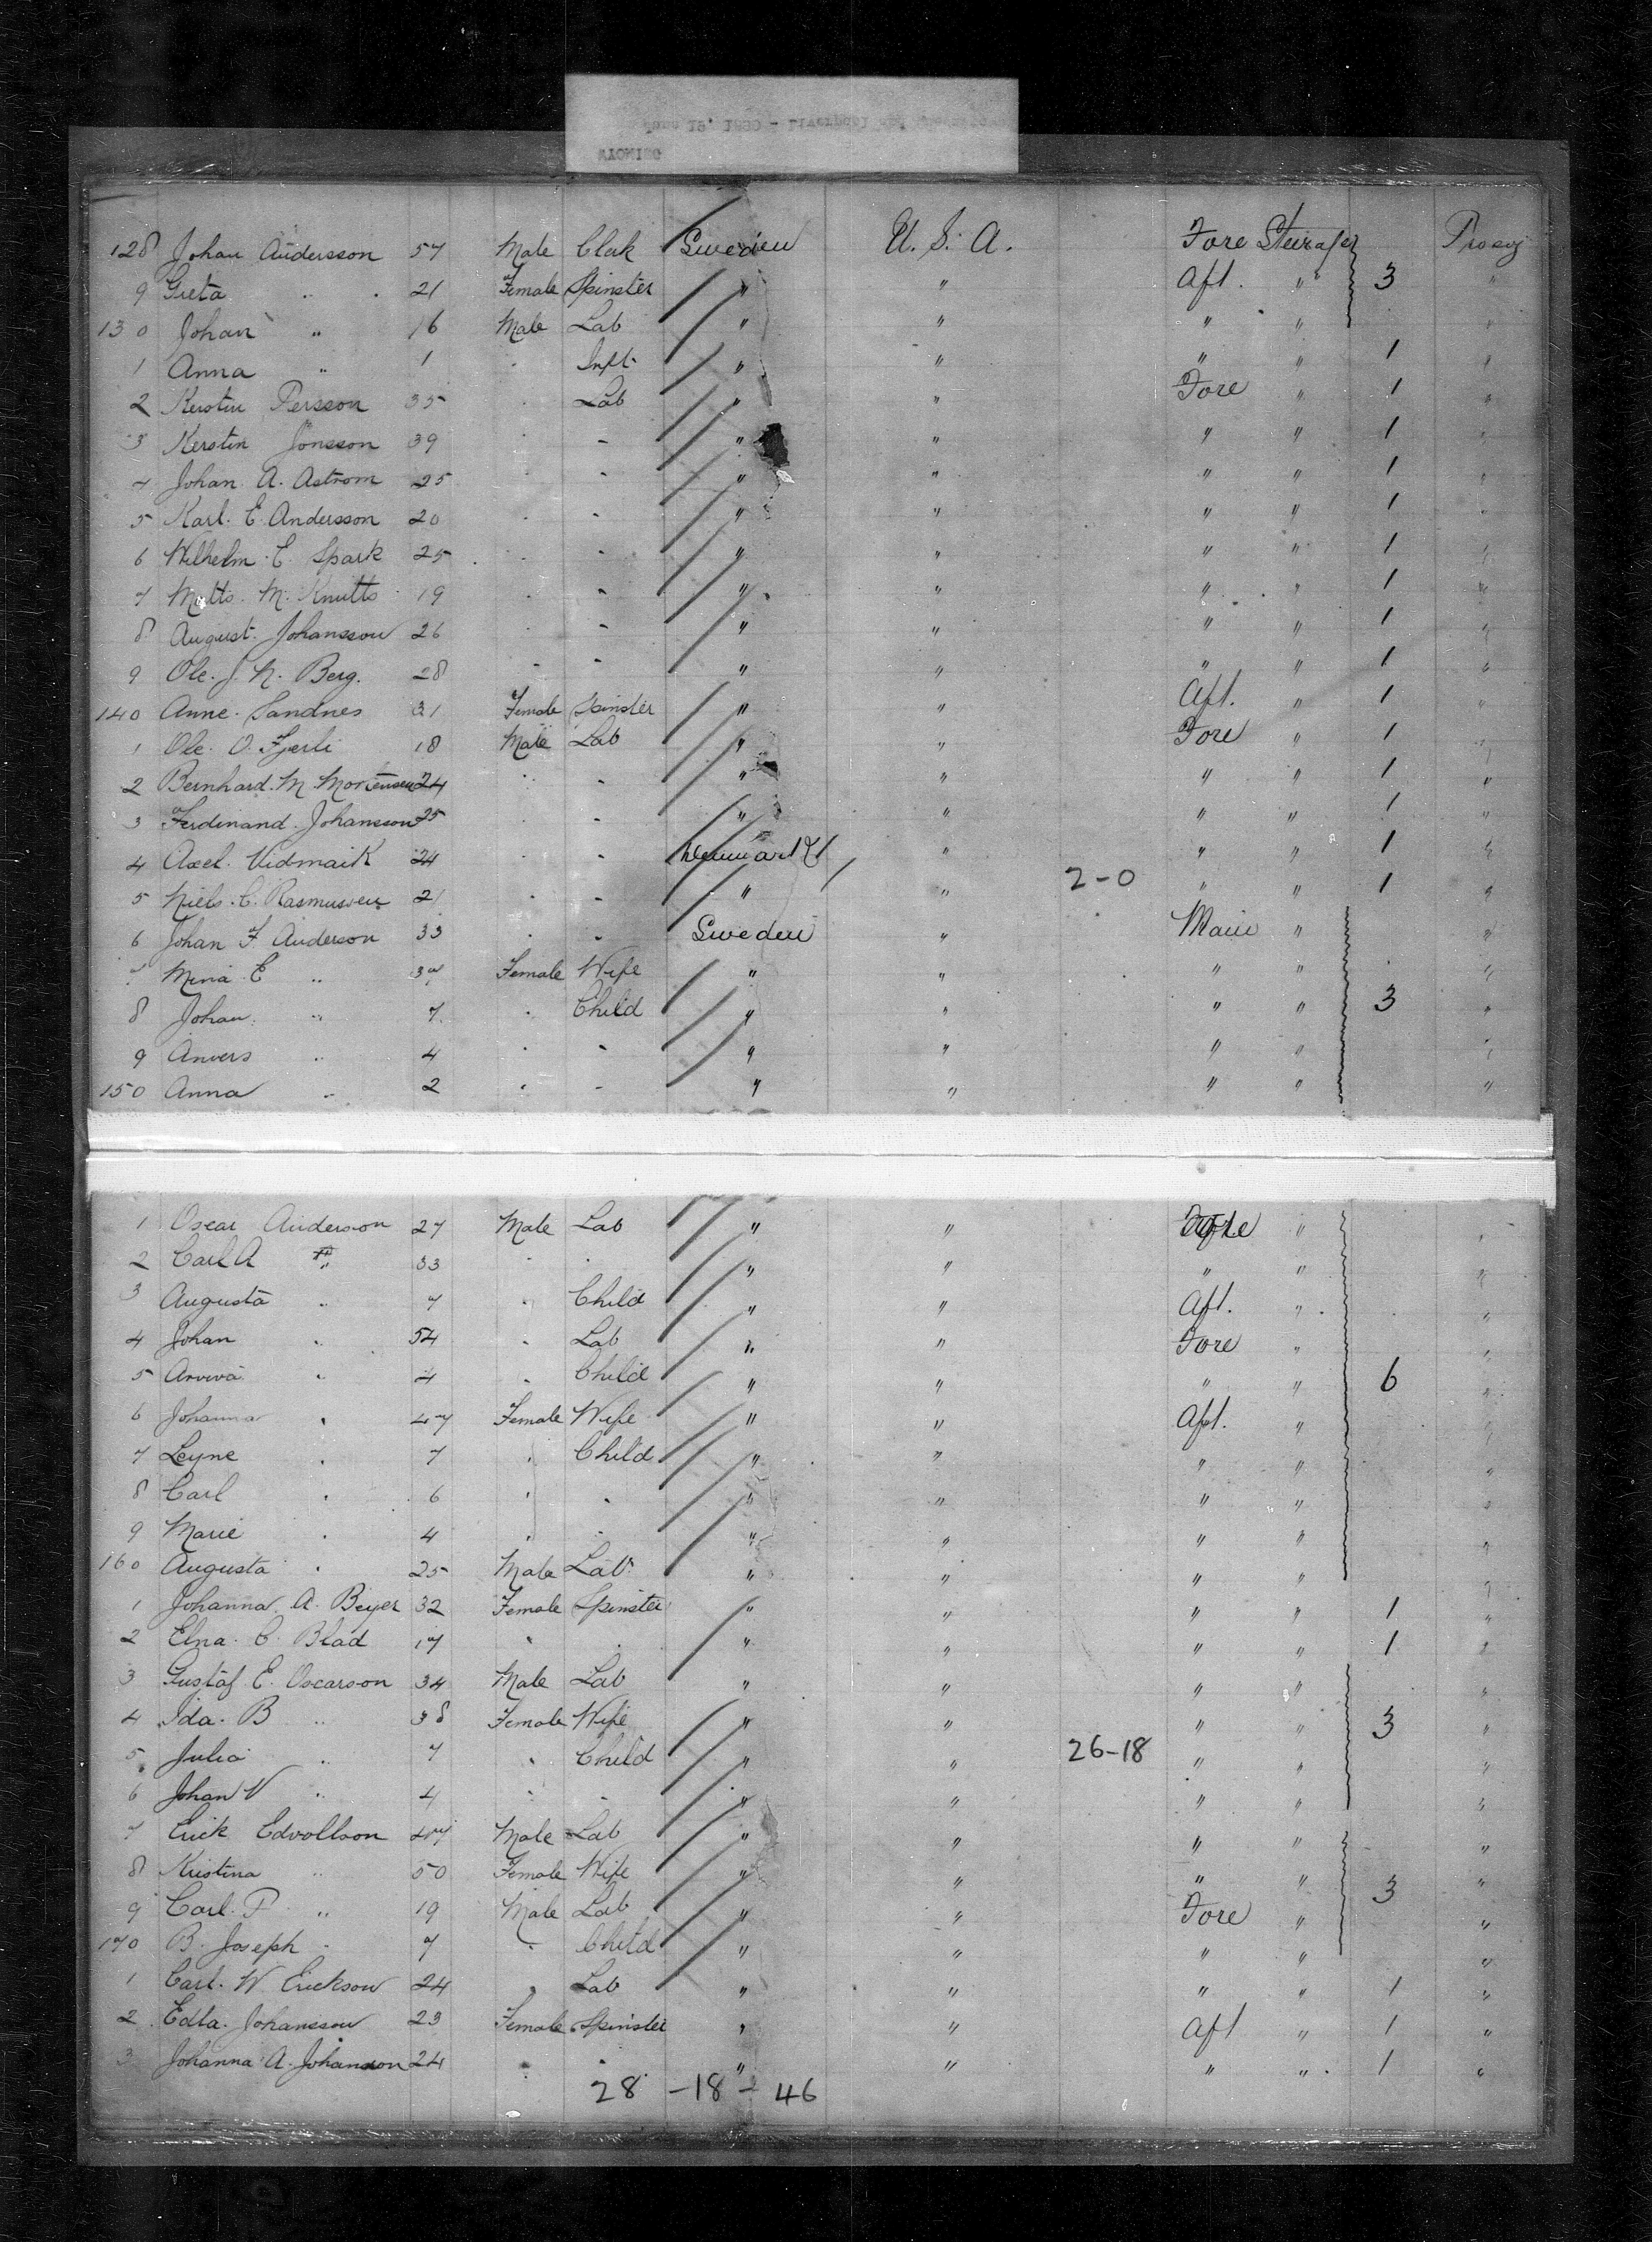 128 Johan Andersson 57 Male Clak Sweden U. S. A. Fore Steirage
9 Greta " 21 Female Spinster " " Aft. " 3 "
130 Johan " 16 Male Lab " " " " "
1 Anna " 1 " Inft " " " " 1 "
2 Kerstin Persson 35 " Lab " " Fore " 1 "
3 Kerstin Jonsson 39 " " " " " " 1 "
4 Johan A. Astrom 25 " " " " " " 1 "
5 Karl. E. Andersson 20 " " " " " " 1 "
6 Wilhelm E. Spark 25 " " " " " " 1 "
7 Matts. M. Knutts 19 " " " " " " 1 "
8 August. Johansson 26 " " " " " " 1 "
9 Ole. J. N. Berg. 28 " " " " " " 1 "
140 Anne. Sandnes 31 Female Spinster " " Aft. " 1 "
1 Ole. O. Fjerli 18 Male Lab " " Fore " 1 "
2 Bernhard. M. Mortensen 24 " " " " " " 1 "
3 Ferdinand. Johansson 25 " " " " " " 1 "
4 Axel. Vidmaik 24 " " Denmark " " " 1 "
5 Niels. C. Rasmussen 21 " " " " 2-0 " " 1 "
6 Johan F Anderson 33 " " Sweden " Main " "
7 Mina E " 37 Female Wife " " " " "
8 Johan " 7 " Child " " " " 3 "
9 Anvers " 4 " " " " " " "
150 Anna " 2 " " " " " " "
1 Oscar Anderson 27 Male Lab " " "
2 Carl A " 33 " " " " " " "
3 Augusta " 7 " Child " " Aft. " "
4 Johan " 54 " Lab " " Fore " "
5 Arviva " 4 " Child " " " " 6 "
6 Johanna " 47 Female Wife " " Aft. " "
7 Leyne " 7 " Child " " " " "
8 Carl " 6 " " " " " " "
9 Marie " 4 " " " " " " "
160 Augusta " 25 Male Lab " " " " "
1 Johanna. A. Beyer 32 Female Spinster " " " " 1 "
2 Elna. C. Blad 17 " " " " " " 1 "
3 Gustaf E. Oscarson 34 Male Lab " " " " "
4 Ida. B " 38 Female Wife " " " " 3 "
5 Julia " 7 " Child " " 26-18 " " "
6 Johan V " 4 " " " " " " "
7 Erick Edvollson 47 Male Lab " " " " "
8 Kristina " 50 Female Wife " " " " 3 "
9 Carl. P " 19 Male Lab " " Fore " "
170 B. Joseph " 7 " Child " " " " "
1 Carl. W Erickson 24 " Lab " " " " 1 "
2 Edla. Johansson 23 Female Spinster " " Aft " 1 "
3 Johanna A. Johanson 24 " " " " " " 1 "
28 - 18 - 46